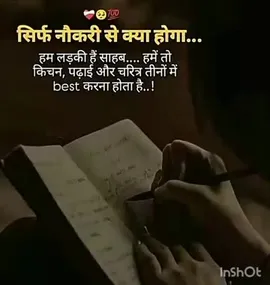 ❤️‍🩹🥺💯
सिर्फ नौकरी से क्या होगा...
हम लड़की हैं साहब.... हमें तो
किचन, पढ़ाई और चरित्र तीनों में
best करना होता है..!
InShOt